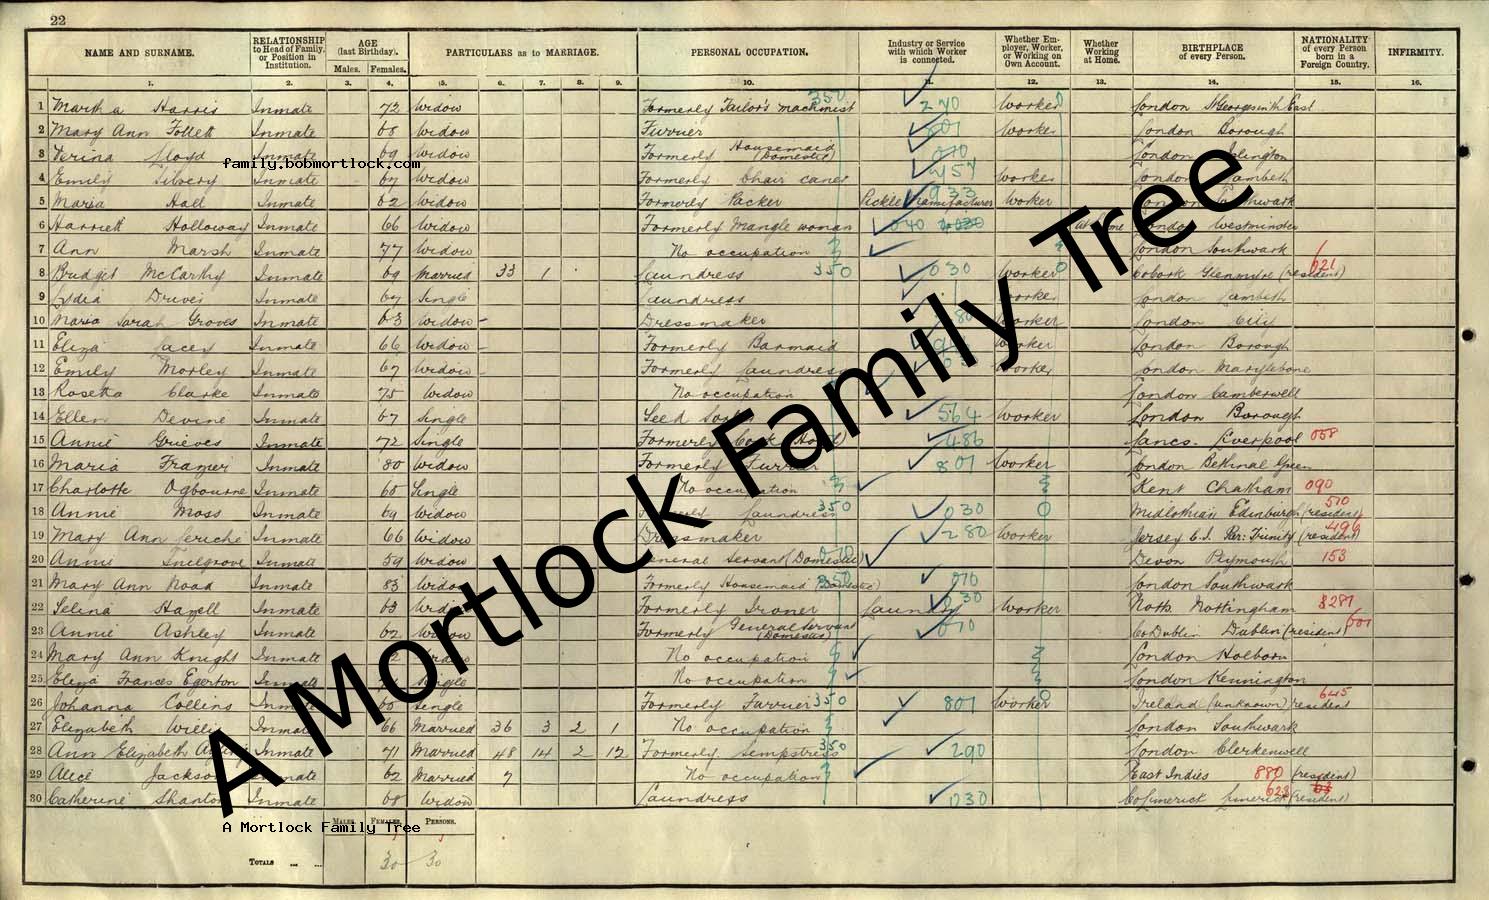 22
NAME AND SURNAME. RELATIONSHIP to Head of Family, or Position in Institution. AGE (last Birthday). Males. Females. PARTICULARS as to MARRIAGE. PERSONAL OCCUPATION. Industry or Service with which Worker is connected. Whether Employer, Worker, or Working on Own Account. Whether Working at Home. BIRTHPLACE of every Person. NATIONALITY of every Person born in a Foreign Country. INFIRMITY.
1. 2. 3. 4. 5. 6. 7. 8. 9. 10. 11. 12. 13. 14. 15. 16.
1 Martha Harris Inmate 72 Widow Formerly Tailor's machinist 350 240 Worker 0 London St Georges in th East
2 Mary Ann Follett Inmate 68 Widow Furrier 801 Worker London Borough
3 Lloyd Inmate 69 Widow Formerly Housemaid (Domestic) 070 London Islington
family.bobmortlock.com
4 Emily Inmate 67 Widow Formerly Chair caner 457 Worker London Lambeth
5 Maria Hall Inmate 62 Widow Formerly Packer 933 Pickle Manufacturer Worker London Southwark
6 Harriett Holloway Inmate 66 Widow Formerly Mangle woman 040 At Home London Westminster
7 Ann Marsh Inmate 77 Widow No occupation London Southwark
8 Bridget McCarthy Inmate 69 Married 33 1 Laundress 350 030 Worker 0 Co Cork Glenmyre (resident) 621
9 Lydia Inmate 67 Single Laundress Worker London Lambeth
10 Maria Sarah Groves Inmate 63 Widow Dressmaker Worker London City
11 Eliza Lacey Inmate 66 Widow Formerly Barmaid Worker London Borough
12 Emily Morley Inmate 67 Widow Formerly Laundress Worker London Marylebone
13 Rosetta Clarke Inmate 75 Widow No occupation London Camberwell
14 Ellen Devine Inmate 67 Single Seed 564 Worker London Borough
15 Annie Grieves Inmate 72 Single Formerly Cook 486 Lancs. Liverpool 058
16 Maria Inmate 80 Widow Formerly Furrier 801 Worker London Bethnal Green
17 Charlotte Ogbourne Inmate 65 Single No occupation Kent Chatham 090
18 Annie Moss Inmate 69 Widow Laundress 350 030 0 Midlothian Edinburgh (resident) 510
19 Mary Ann Inmate 66 Widow Dressmaker 280 Worker Jersey C.I. Par: Trinity (resident) 496
20 Annie Snelgrove Inmate 59 Widow General Servant (Domestic) Devon Plymouth 153
21 Mary Ann Inmate 83 Widow Formerly Housemaid (Domestic) 350 070 London Southwark
22 Selina Hazell Inmate 63 Formerly Ironer Laundry 030 Worker Notts Nottingham 3281
23 Annie Ashley Inmate 62 Widow Formerly General Servant (Domestic) 070 Co Dublin Dublin (resident) 601
24 Mary Ann Knight Inmate No occupation London Holborn
25 Eliza Frances Egerton Single No occupation London Kennington
26 Johanna Collins Single Formerly Furrier 350 801 Worker 0 Ireland (unknown) resident 645
27 Elizabeth Willis 66 Married 36 3 2 1 No occupation London Southwark
28 Ann Elizabeth Inmate 71 Married 48 14 2 12 Formerly Sempstress 350 290 London Clerkenwell
29 Alice Jackson Inmate 62 Married 7 No occupation East Indies 880 (resident)
30 Catherine Shanton Inmate 68 Widow Laundress 030 Co Limerick Limerick (resident) 623
A Mortlock Family Tree
A Mortlock Family Tree
MALES. FEMALES. PERSONS.
TOTALS ... ... 30 30